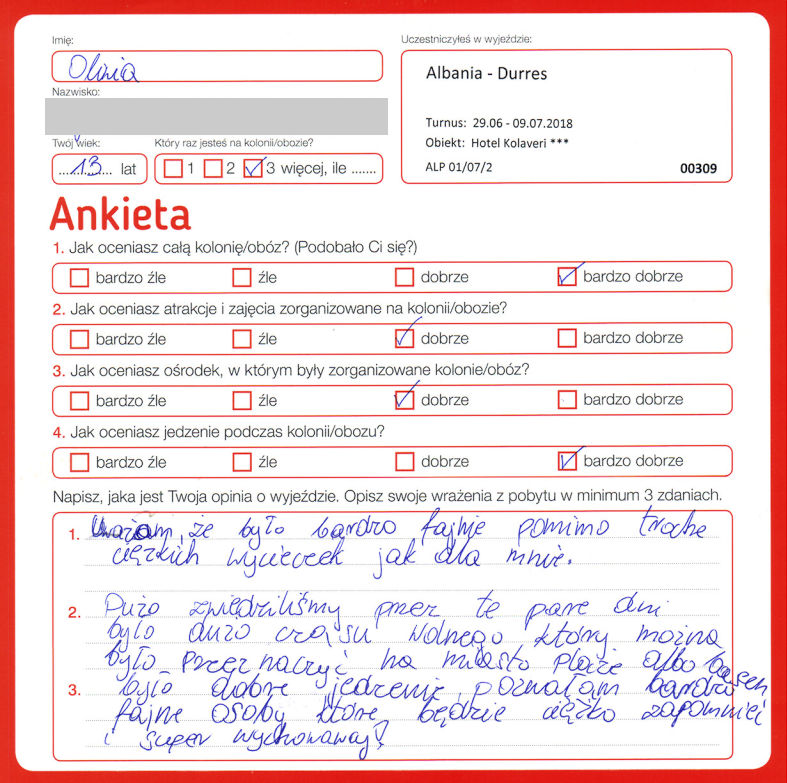 Imię:
Oliwia
Nazwisko:
Twój wiek:
13 lat
Który raz jesteś na kolonii/obozie?
1 2 3 więcej, ile .......
Uczestniczyłeś w wyjeździe:
Albania - Durres
Turnus: 29.06 - 09.07.2018
Obiekt: Hotel Kolaveri ***
ALP 01/07/2 00309
Ankieta
1. Jak oceniasz całą kolonię/obóz? (Podobało Ci się?)
bardzo źle źle dobrze bardzo dobrze
2. Jak oceniasz atrakcje i zajęcia zorganizowane na kolonii/obozie?
bardzo źle źle dobrze bardzo dobrze
3. Jak oceniasz ośrodek, w którym były zorganizowane kolonie/obóz?
bardzo źle źle dobrze bardzo dobrze
4. Jak oceniasz jedzenie podczas kolonii/obozu?
bardzo źle źle dobrze bardzo dobrze
Napisz, jaka jest Twoja opinia o wyjeździe. Opisz swoje wrażenia z pobytu w minimum 3 zdaniach.
1. Uważam, że było bardzo fajnie pomimo troche
ciężkich wycieczek jak dla mnie.
2. Dużo zwiedziliśmy przez te pare dni
było dużo czasu wolnego który można
było przeznaczyć na miasto plaże albo basen
3. było dobre jedzenie, poznałam bardzo
fajne osoby które będzie ciężko zapomnieć
i super wychowawcy!